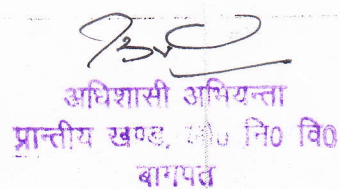 अधिशासी अभियन्ता
प्रान्तीय खण्ड, नि0 वि0
बागपत